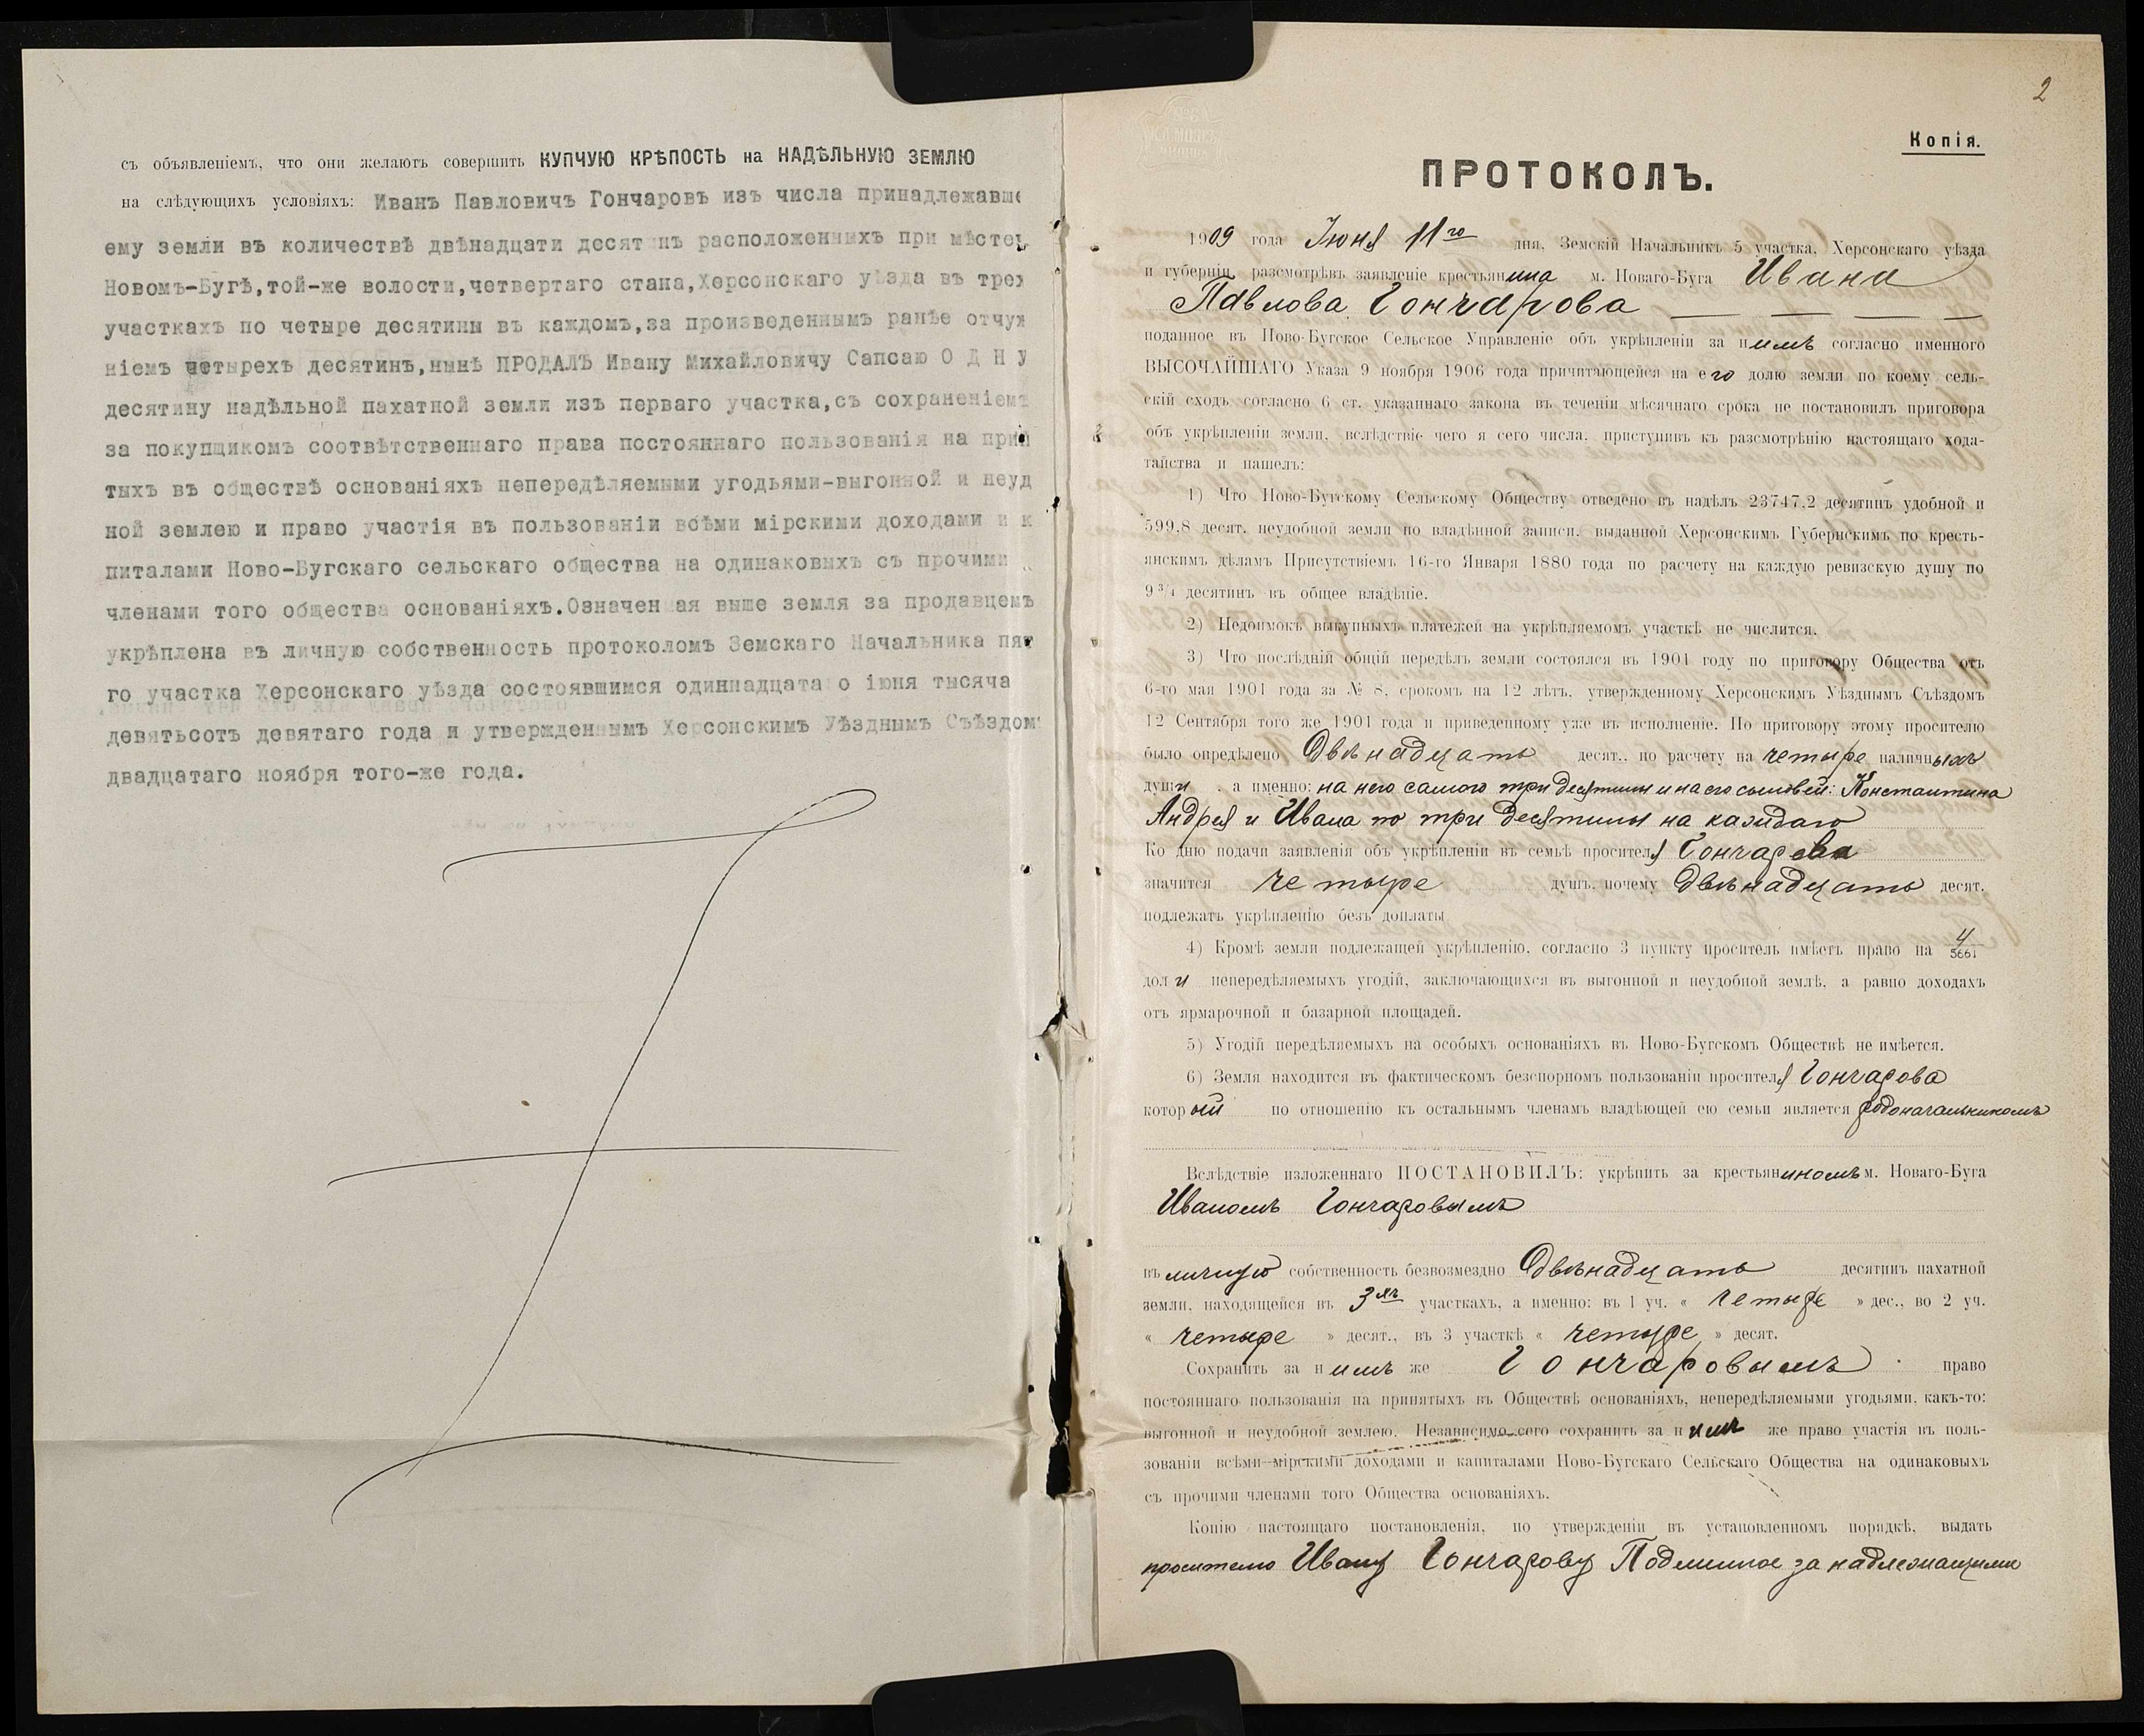 съ объявленіемъ, что они желаютъ совершить КУПЧУЮ КРѢПОСТЬ на НАДѢЛЬНУЮ ЗЕМЛЮ
на слѣдующихъ условіяхъ: Иванъ Павловичъ Гончаровъ изъ числа принадлежавше
ему земли въ количествѣ двѣнадцати десятинъ расположенныхъ при мѣстеч
Новомъ-Бугѣ,той-же волости,четвертаго стана,Херсонскаго уѣзда въ трех
участкахъ по четыре десятины въ каждомъ,за произведеннымъ ранѣе отчуж
ніемъ четырехъ десятинъ,нынѣ ПРОДАЛЪ Ивану Михайловичу Сапсаю О Д Н У
десятину надѣльной пахатной земли изъ перваго участка,съ сохраненіемъ
за покупщикомъ соотвѣтственнаго права постояннаго пользованія на прин
тыхъ въ обществѣ основаніяхъ непередѣляемыми угодьями-выгонной и неуд
ной землею и право участія въ пользованіи всѣми мірскими доходами и к
питалами Ново-Бугскаго сельскаго общества на одинаковыхъ съ прочими
членами того общества основаніяхъ.Означенная выше земля за продавцемъ
укрѣплена въ личную собственность протоколомъ Земскаго Начальника пят
го участка Херсонскаго уѣзда состоявшимся одиннадцатаго іюня тысяча
девятьсотъ девятаго года и утвержденнымъ Херсонскимъ Уѣзднымъ Съѣздомъ
двадцатаго ноября того-же года.
2
Копія.
ПРОТОКОЛЪ.
1909 года Іюня 11го дня, Земскій Начальникъ 5 участка, Херсонскаго уѣзда
и губерніи, разсмотрѣвъ заявленіе крестьянина м. Новаго-Буга Ивана
Павлова Гончарова
поданное въ Ново-Бугское Сельское Управленіе объ укрѣпленіи за нимъ согласно именного
ВЫСОЧАЙШАГО Указа 9 ноября 1906 года причитающейся на его долю земли по коему сель-
скій сходъ согласно 6 ст. указаннаго закона въ теченіи мѣсячнаго срока не постановилъ приговора
объ укрѣпленіи земли, вслѣдствіе чего я сего числа, приступивъ къ разсмотрѣнію настоящаго хода-
тайства и нашелъ:
1) Что Ново-Бугскому Сельскому Обществу отведено въ надѣлъ 23747,2 десятинъ удобной и
599,8 десят. неудобной земли по владѣнной записи, выданной Херсонскимъ Губернскимъ по кресть-
янскимъ дѣламъ Присутствіемъ 16-го Января 1880 года по расчету на каждую ревизскую душу по
9 3/4 десятинъ въ общее владѣніе.
2) Недоимокъ выкупныхъ платежей на укрѣпляемомъ участкѣ не числится.
3) Что послѣдній общій передѣлъ земли состоялся въ 1901 году по приговору Общества отъ
6-го мая 1901 года за № 8, срокомъ на 12 лѣтъ, утвержденному Херсонскимъ Уѣзднымъ Съѣздомъ
12 Сентября того же 1901 года и приведенному уже въ исполненіе. По приговору этому просителю
было опредѣлено Двѣнадцать десят., по расчету на четыре наличныхъ
души, а именно: на него самого три десятины и на его сыновей: Константина
Андрея и Ивана по три десятины на каждаго
Ко дню подачи заявленія объ укрѣпленіи въ семьѣ просителя Гончарова
значится четыре душъ, почему Двѣнадцать десят.
подлежатъ укрѣпленію безъ доплаты
4) Кромѣ земли подлежащей укрѣпленію, согласно 3 пункту проситель имѣетъ право на 4/5661
доли непередѣляемыхъ угодій, заключающихся въ выгонной и неудобной землѣ, а равно доходахъ
отъ ярмарочной и базарной площадей.
5) Угодій передѣляемыхъ на особыхъ основаніяхъ въ Ново-Бугскомъ Обществѣ не имѣется.
6) Земля находится въ фактическомъ безспорномъ пользованіи просителя Гончарова
который по отношенію къ остальнымъ членамъ владѣющей ею семьи является родоначальникомъ
Вслѣдствіе изложеннаго ПОСТАНОВИЛЪ: укрѣпить за крестьяниномъ м. Новаго-Буга
Иваномъ Гончаровымъ
въ личную собственность безвозмездно Двѣнадцать десятинъ пахатной
земли, находящейся въ 3хъ участкахъ, а именно: въ 1 уч. « четыре » дес., во 2 уч.
« четыре » десят., въ 3 участкѣ « четыре » десят.
Сохранить за нимъ же Гончаровымъ право
постояннаго пользованія на принятыхъ въ Обществѣ основаніяхъ, непередѣляемыми угодьями, какъ-то:
выгонной и неудобной землею. Независимо сего сохранить за нимъ же право участія въ поль-
зованіи всѣми мірскими доходами и капиталами Ново-Бугскаго Сельскаго Общества на одинаковыхъ
съ прочими членами того Общества основаніяхъ.
Копію настоящаго постановленія, по утвержденіи въ установленномъ порядкѣ, выдать
просителю Ивану Гончарову Подлинное за надлежащими